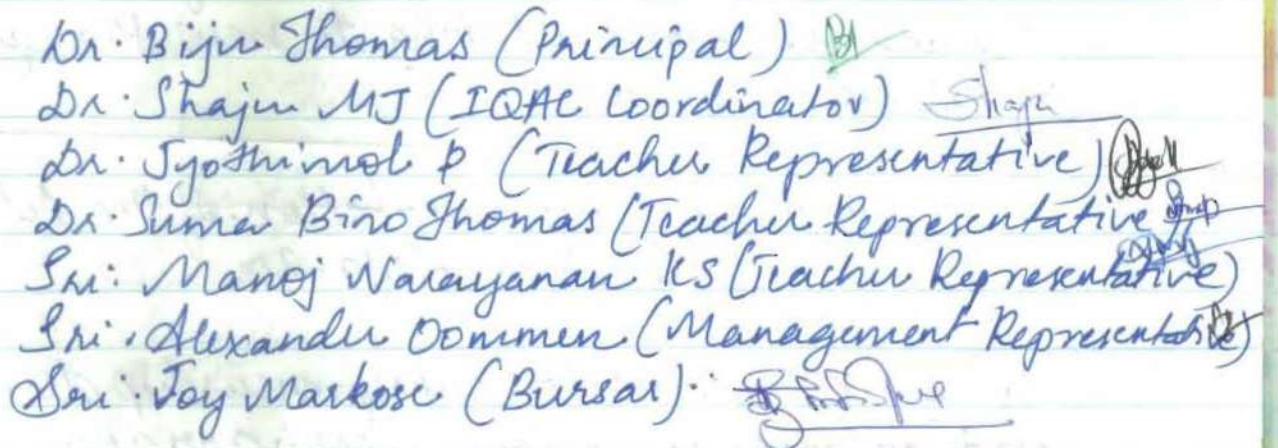 Dr. Biju Thomas (Principal)
Dr. Shaju MJ (IQAC Coordinator) Shaju
Dr. Jyothimol P (Teacher Representative)
Dr. Suma Bino Thomas (Teacher Representative
Sri. Manoj Narayanan KS (Teacher Representative)
Sri. Alexander Oommen (Management Representative)
Sri. Joy Markose (Bursar).